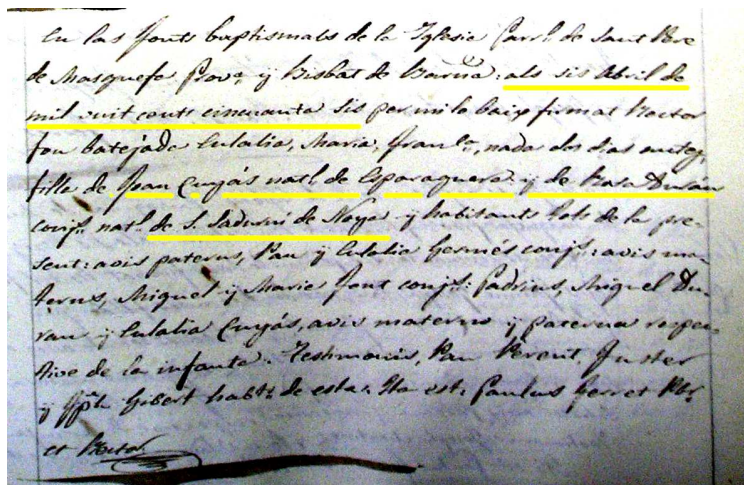 En las fonts baptismals de la Yglesia Parrl. de Sant Pere
de Masquefa Prov.a y Bisbat de Barna: als sis Abril de
mil vuit cents cincuanta sis per mi lo baix firmat Rector
fou batejada Eulalia, Maria, Franca, nada dos dias antes,
filla de Joan Cuyás natl. de Esparaguera y de Rosa Durán
conjs. natl. de S. Sadurní de Noya y habitants tots de la pre-
sent: avis paterns, Pau y Eulalia Fermés conjs.: avis ma-
terns, Miquel y Maria Font conjs.: Padrins, Miquel Du-
ran y Eulalia Cuyás, avis materns y paterna respec-
tive de la infanta. Testimonis, Pau Parent, Fuster
y Jph. Gibert habts. de esta. Ita est: Paulus Ferret Pbr.
et Rector